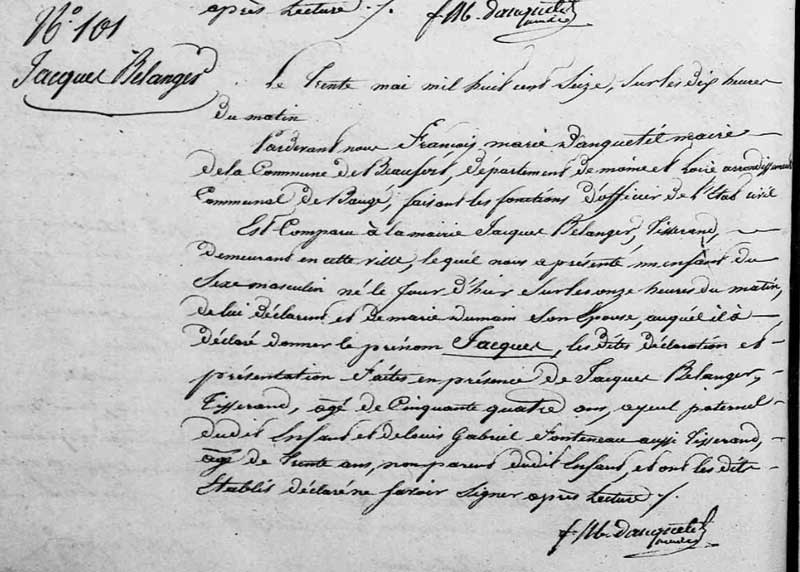 après Lecture /.
f. M. danquetil
maire
N.º 101
Jacques Bélanger
Le Trente mai mil huit cent Seize, Sur les dix heures
du matin
Pardevant nous François marie Danquetil maire
de la Commune de Beaufort, département de maine et Loire arrondissement
Communal de Baugé, faisant les fonctions d'officier de l'Etat civil
Est Comparu à la mairie Jacques Bélanger, Tisserand,
demeurant en cette ville, lequel nous a présenté un enfant du
Sexe masculin né le Jour d'hier Sur les onze heures du matin,
de lui déclarant et de marie dumain Son Epouse, auquel il à
déclaré donner le prénom Jacques, les dites déclaration et
présentation Faites en présence de Jacques Bélanger,
Tisserand, âgé de Cinquante quatre ans, ayeul paternel
dudit Enfant et de Louis Gabriel Fonteneau aussi Tisserand,
âgé de Trente ans, non parent dudit Enfant, et ont les dits
Etablis déclaré ne savoir Signer après Lecture /.
f. M. danquetil
maire